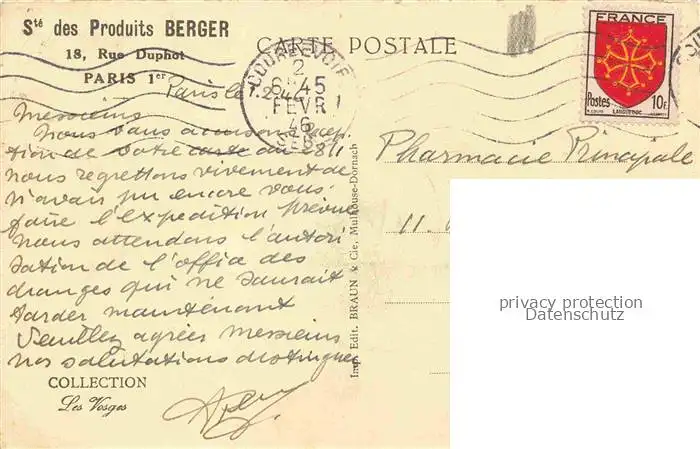 Sté des Produits BERGER
18, Rue Duphot
PARIS 1er
CARTE POSTALE
FRANCE
Postes 10F
LANGUEDOC
COURBEVOIE
2
6 45
FEVR
46
Paris le 1.2.46
Messieurs
Nous vous accusons récep
tion de votre carte du 28/1
nous regrettons vivement de
n'avoir pu encore vous
faire l'expédition prévue
nous attendons l'autori
sation de l'office des
changes qui ne saurait
tarder maintenant
Veuillez agréer Messieurs
nos salutations distinguées
Pharmacie Principale
11.
Imp. Edit. BRAUN & Cie, Mulhouse-Dornach
privacy protection
Datenschutz
COLLECTION
Les Vosges